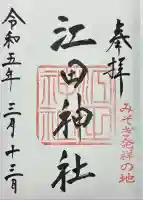 奉拝
みそぎ発祥の地
江田神社
令和五年 三月十三日